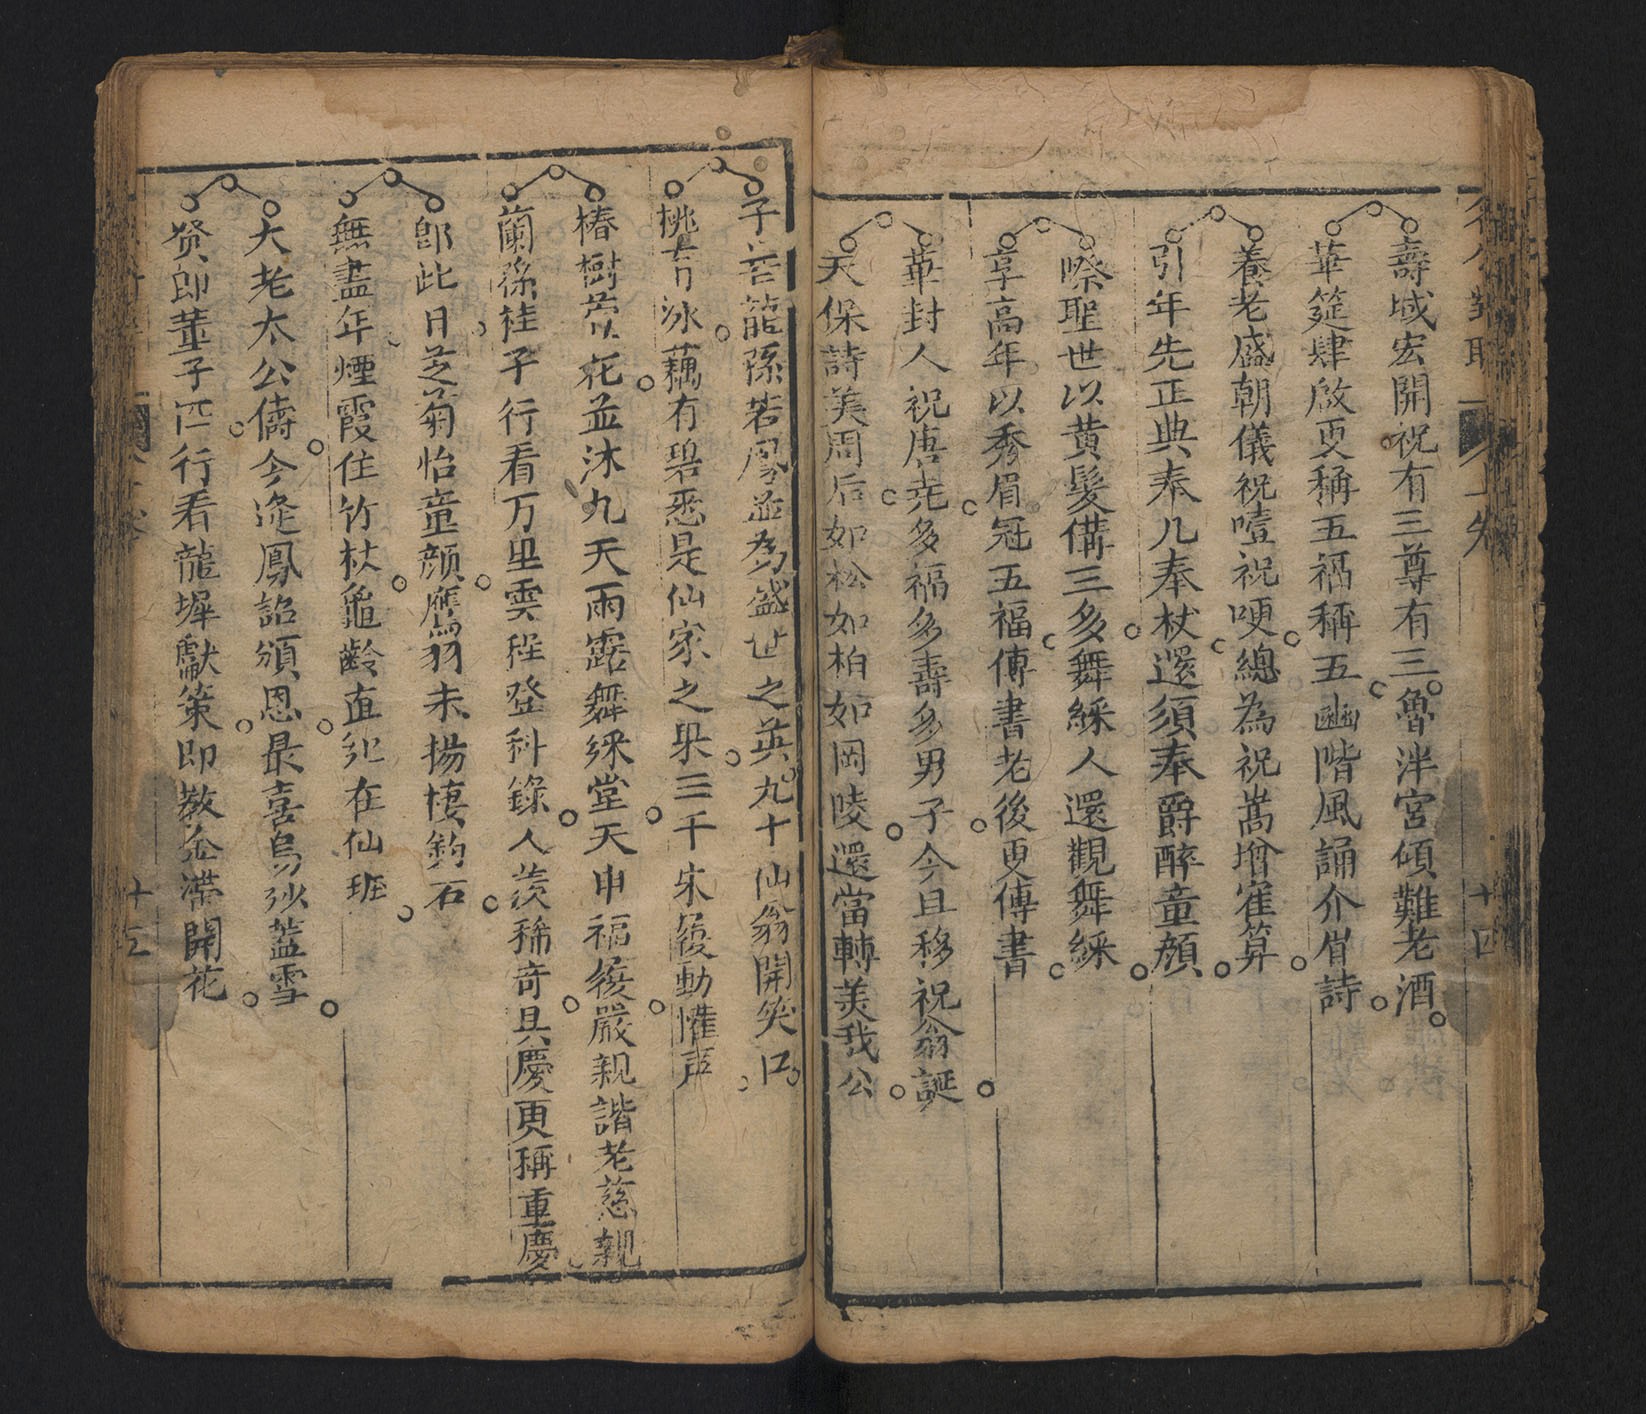 壽域宏開祝有三尊有三魯泮宮傾難老酒
華筵肆啟更稱五福稱五豳階風誦介眉詩
養老盛朝儀祝噎祝哽總為祝嵩增寉算
引年先正典奉几奉杖還須奉爵醉童顔
際聖世以黄髮備三多舞綵人還觀舞綵
享高年以秀眉冠五福傳書老後更傳書
華封人祝唐尭多福多壽多男子今且移祝翁誕
天保詩美周后如松如柏如岡陵還當轉美我公
子若龍孫若鳳並為盛世之英九十仙翁開笑口
桃有 冰藕有碧悉是仙家之果三千朱履動懽声
椿樹萱花並沐九天雨露舞綵堂天申福後嚴親諧老慈親
蘭孫桂子行看万里雲程登科錄人羡稱奇具慶更稱重慶
即此日芝蒭怡童顔鷹羽未揚棲釣石
無盡年煙霞住竹杖龜齡直氾在仙班
大老太公儔今逢鳳詔頒恩最喜烏沙蓋雪
贤郎董子匹行看龍墀獻策即教金滞開花
十四
十五